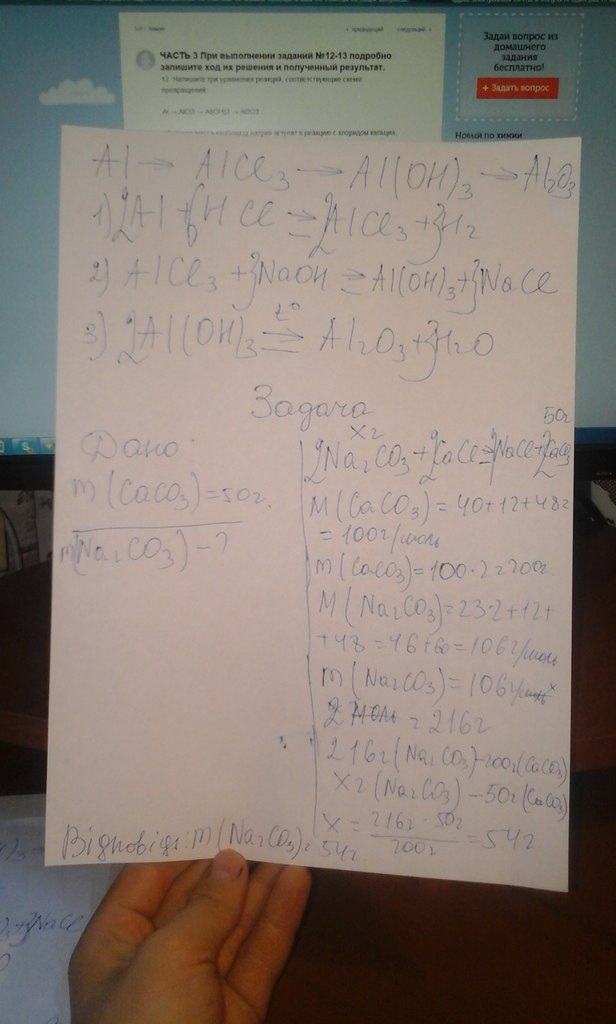 предыдущий
следующий
ЧАСТЬ 3 При выполнении заданий №12-13 подробно
запишите ход их решения и полученный результат.
12. Напишите три уравнения реакций, соответствующие схеме
превращений
Задай вопрос из
домашнего
задания
бесплатно!
+ Задать вопрос
Новый по химии
Al → AlCl3 → Al(OH)3 → Al2O3
1) 2Al + 6HCl → 2AlCl3 + 3H2
2) AlCl3 + 3NaOH → Al(OH)3 + 3NaCl
3) 2Al(OH)3 t° → Al2O3 + 3H2O
Задача
Дано
m(CaCO3) = 50г.
m(Na2CO3) - ?
xг 50г
2Na2CO3 + 2CaCl = NaCl + 2CaCO3
M(CaCO3) = 40+12+48 =
= 100г/моль
m(CaCO3) = 100·2 = 200г
M(Na2CO3) = 23·2+12+
+48 = 46+60 = 106г/моль
m(Na2CO3) = 106г/моль x
2 моль = 216г
216г(Na2CO3) - 200г(CaCO3)
xг(Na2CO3) - 50г(CaCO3)
x = 216г · 50г / 200г = 54г
Відповідь: m(Na2CO3) = 54г.